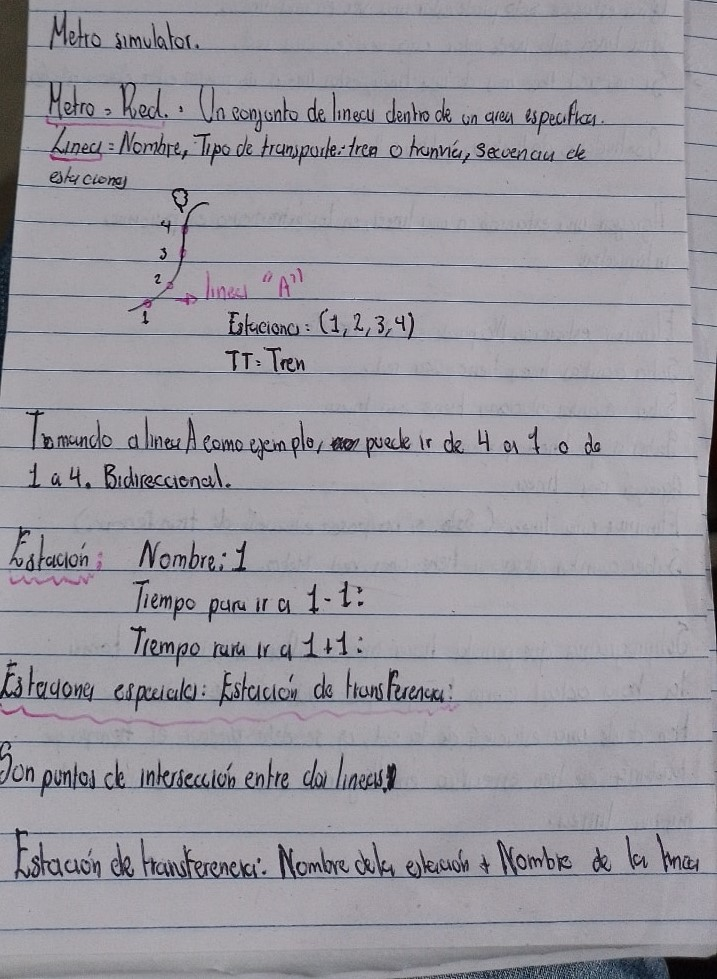 Metro simulator.
Metro = Red. : Un conjunto de lineas dentro de un area especifica.
Linea = Nombre, Tipo de transporte: tren o tranvía, secuencia de
estaciones
4
3
2
1
→ linea "A"
Estaciones: (1, 2, 3, 4)
TT: Tren
Tomando a linea A como ejemplo, puede ir de 4 a 1 o de
1 a 4. Bidireccional.
Estación: Nombre: 1
Tiempo para ir a 1-1:
Tiempo para ir a 1+1:
Estaciones especiales: Estación de transferencia:
Son puntos de intersección entre dos lineas.
Estación de transferencia: Nombre de la estación + Nombre de la linea